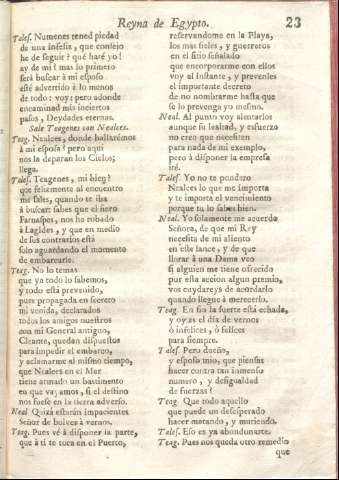 Reyna de Egypto. 23
Talef. Numenes tened piedad
de una infelis, que consejo
he de seguir? què haré yo!
ay de mi! mas lo primero
serà buscar à mi esposo
esté advertido à lo menos
de todo: voy: pero adonde
encaminad mis inciertos
pasos, Deydades eternas.
Sale Teagenes con Nealces.
Teag. Nealces, donde hallarémos
à mi esposa? pero aqui
nos la deparan los Cielos;
llega.
Talef. Teagenes, mi bien?
que felizmente al encuentro
me sales, quando te iba
à buscar: sabes que el fiero
Farnaspes, nos ha robado
à Lagides, y que en medio
de sus contrarios està
solo aguardando el momento
de embarcarle.
Teag. No lo temas
que ya todo lo sabemos,
y todo està prevenido,
pues propagada en secreto
mi venida, declarados
todos los amigos nuestros
con mi General antiguo,
Cleante, quedan dispuestos
para impedir el embarco,
y aclamarme al mismo tiempo,
que Nealces en el Mar
tiene armado un bastimento
en que vamos, si el destino
nos fuese en la tierra adverso.
Neal Quizá estarán impacientes
Señor de bolver à vernos.
Teag. Pues vé à disponer la parte,
que à ti te toca en el Puerto,
reservandome en la Playa,
los mas fieles, y guerreros
en el sitio señalado
que encorporarme con ellos
voy al instante, y prevenles
el importante decreto
de no nombrarme hasta que
se lo prevenga yo mesmo.
Neal. Al punto voy alentarlos
aunque su lealtad, y esfuerzo
no creo que necesiten
para nada de mi exemplo,
pero à disponer la empresa
iré.
Talef. Yo no te pondero
Nealces lo que me importa
y te importa el vencimiento
porque tu lo sabes bien.
Neal. Yo solamente me acuerdo
Señora, de que mi Rey
necesita de mi aliento
en este lance, y de que
llorar à una Dama veo
si alguien me tiene ofrecido
por esta accion algun premio,
vos cuydareys de acordarlo
quando llegue à merecerlo.
Teag. En fin la suerte està echada,
y oy es el dia de vernos
ò infelices, ò felices
para siempre.
Talef. Pero dueño,
y esposo mio, que piensas
hacer contra tan inmenso
numero, y desigualdad
de fuerzas?
Teag. Que todo aquello
que puede un desesperado
hacer matando, y muriendo.
Talef. Eso es ya abandonarte.
Teag. Pues nos queda otro remedio
que